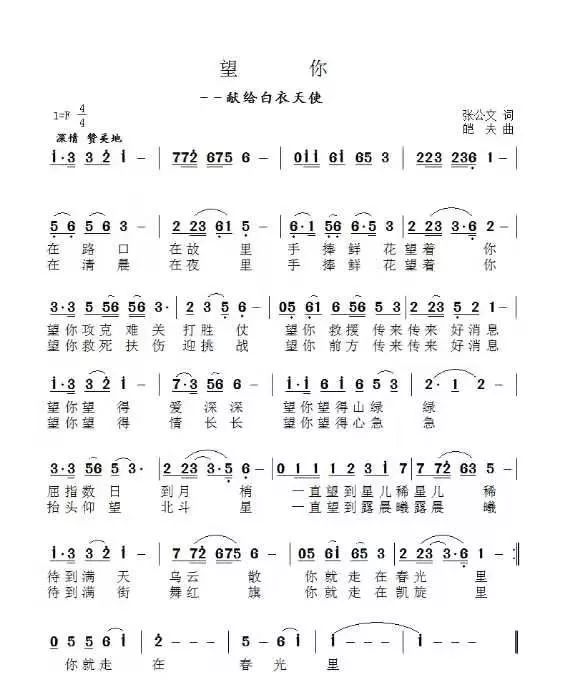 望 你
--献给白衣天使
1=F 4/4
深情 赞美地
张公文 词
皑 夫 曲
i·3 3 2 i - | 772 675 6 - | 0ii i6i 65 3 | 223 236 1 - |
5 6 5 6 5 3 - | 2 23 61 5 - | 6·1 56 6·5 3 | 2 23 3·6 2 - |
在 路 口 在 故 里 手 捧 鲜 花 望 着 你
在 清 晨 在 夜 里 手 捧 鲜 花 望 着 你
3·3 5 56 56 5 3 | 2·3 5 6 - | 05 61 6·5 3 | 2 23 5 2 1 - |
望 你 攻 克 难 关 打 胜 仗 望 你 救 援 传 来 传 来 好 消 息
望 你 救 死 扶 伤 迎 挑 战 望 你 前 方 传 来 传 来 好 消 息
i·3 3 2 i - | 7·3 56 6 - | i·i 6i 6 5 3 | 2· 1 2 - |
望 你 望 得 爱 深 深 望 你 望 得 山 绿 绿
望 你 望 得 情 长 长 望 你 望 得 心 急 急
3·3 56 5 3 - | 2 23 3·5 6 - | 0 1 1 1 2 3 i 7 | 7 72 63 5 - |
屈 指 数 日 到 月 梢 一 直 望 到 星 儿 稀 星 儿 稀
抬 头 仰 望 北 斗 星 一 直 望 到 露 晨 曦 露 晨 曦
i·3 3 2 i - | 7 72 675 6 - | 05 6i 65 3 | 2 23 3·6 1 - :|
待 到 满 天 乌 云 散 你 就 走 在 春 光 里
待 到 满 街 舞 红 旗 你 就 走 在 凯 旋 里
0 5 5 6 i | 2· 2 - | 3 2 6 i | i - - - | i - - - ‖
你 就 走 在 春 光 里